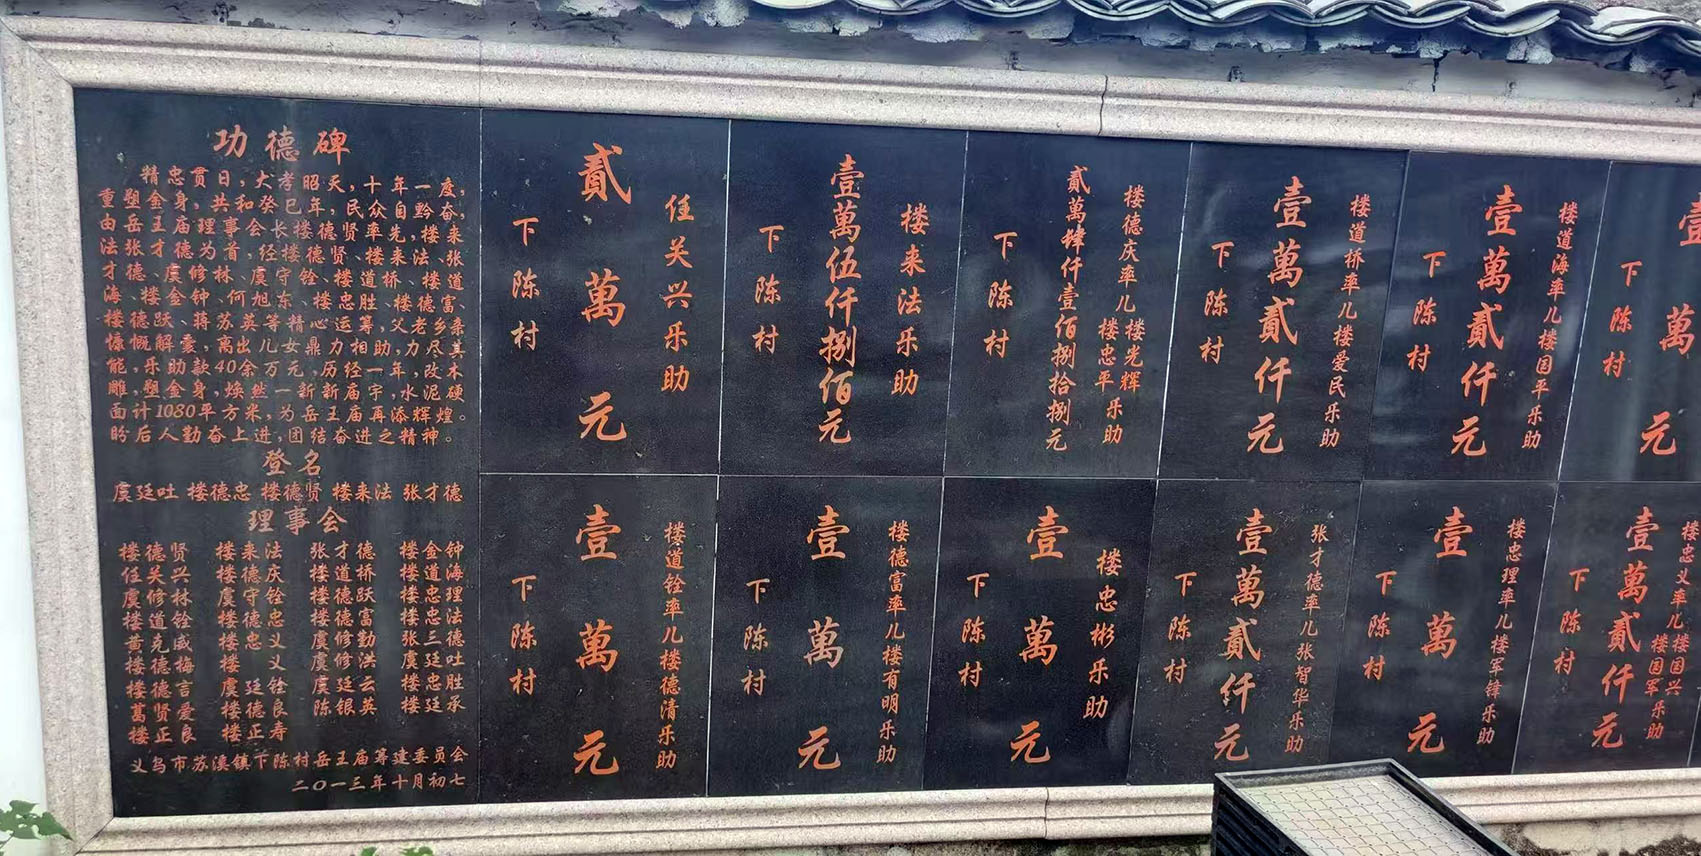 功德碑
精忠贯日,大孝昭天,十年一度,
重塑金身,共和癸巳年,民众自黔奋,
由岳王庙理事会长楼德贤率先,楼来
法张才德为首,经楼德贤、楼来法、张
才德、虞修林、虞守铨、楼道桥、楼道
海、楼金钟、何旭东、楼忠胜、楼德富、
楼德跃、蒋苏英等精心运筹,父老乡亲
慷慨解囊,离出儿女鼎力相助,力尽其
能,乐助款40余万元,历经一年,改木
雕,塑金身,焕然一新新庙宇,水泥硬
面计1080平方米,为岳王庙再添辉煌。
盼后人勤奋上进,团结奋进之精神。
登名
虞廷吐 楼德忠 楼德贤 楼来法 张才德
理事会
楼德贤 楼来法 张才德 楼金钟
任关兴 楼德庆 楼道桥 楼道海
虞修林 虞守铨 楼德跃 楼忠理
楼道铨 楼德忠 楼德富 楼忠法
黄克威 楼忠义 虞修勤 张三德
楼德梅 楼义 虞修洪 虞廷吐
楼德言 虞廷铨 虞廷云 楼忠胜
葛贤爱 楼德良 陈银英 楼廷承
楼正良 楼正寿
义乌市苏溪镇下陈村岳王庙筹建委员会
二〇一三年十月初七
任关兴乐助
貳萬元
下陈村
楼来法乐助
壹萬伍仟捌佰元
下陈村
楼德庆率儿楼光辉
楼忠平乐助
貳萬肆仟壹佰捌拾捌元
下陈村
楼道桥率儿楼爱民乐助
壹萬貳仟元
下陈村
楼道海率儿楼国平乐助
壹萬貳仟元
下陈村
壹萬元
下陈村
楼道铨率儿楼德清乐助
壹萬元
下陈村
楼德富率儿楼有明乐助
壹萬元
下陈村
楼忠彬乐助
壹萬元
下陈村
张才德率儿张智华乐助
壹萬貳仟元
下陈村
楼忠理率儿楼军锋乐助
壹萬元
下陈村
楼忠义率儿楼国兴
楼国军乐助
壹萬貳仟元
下陈村